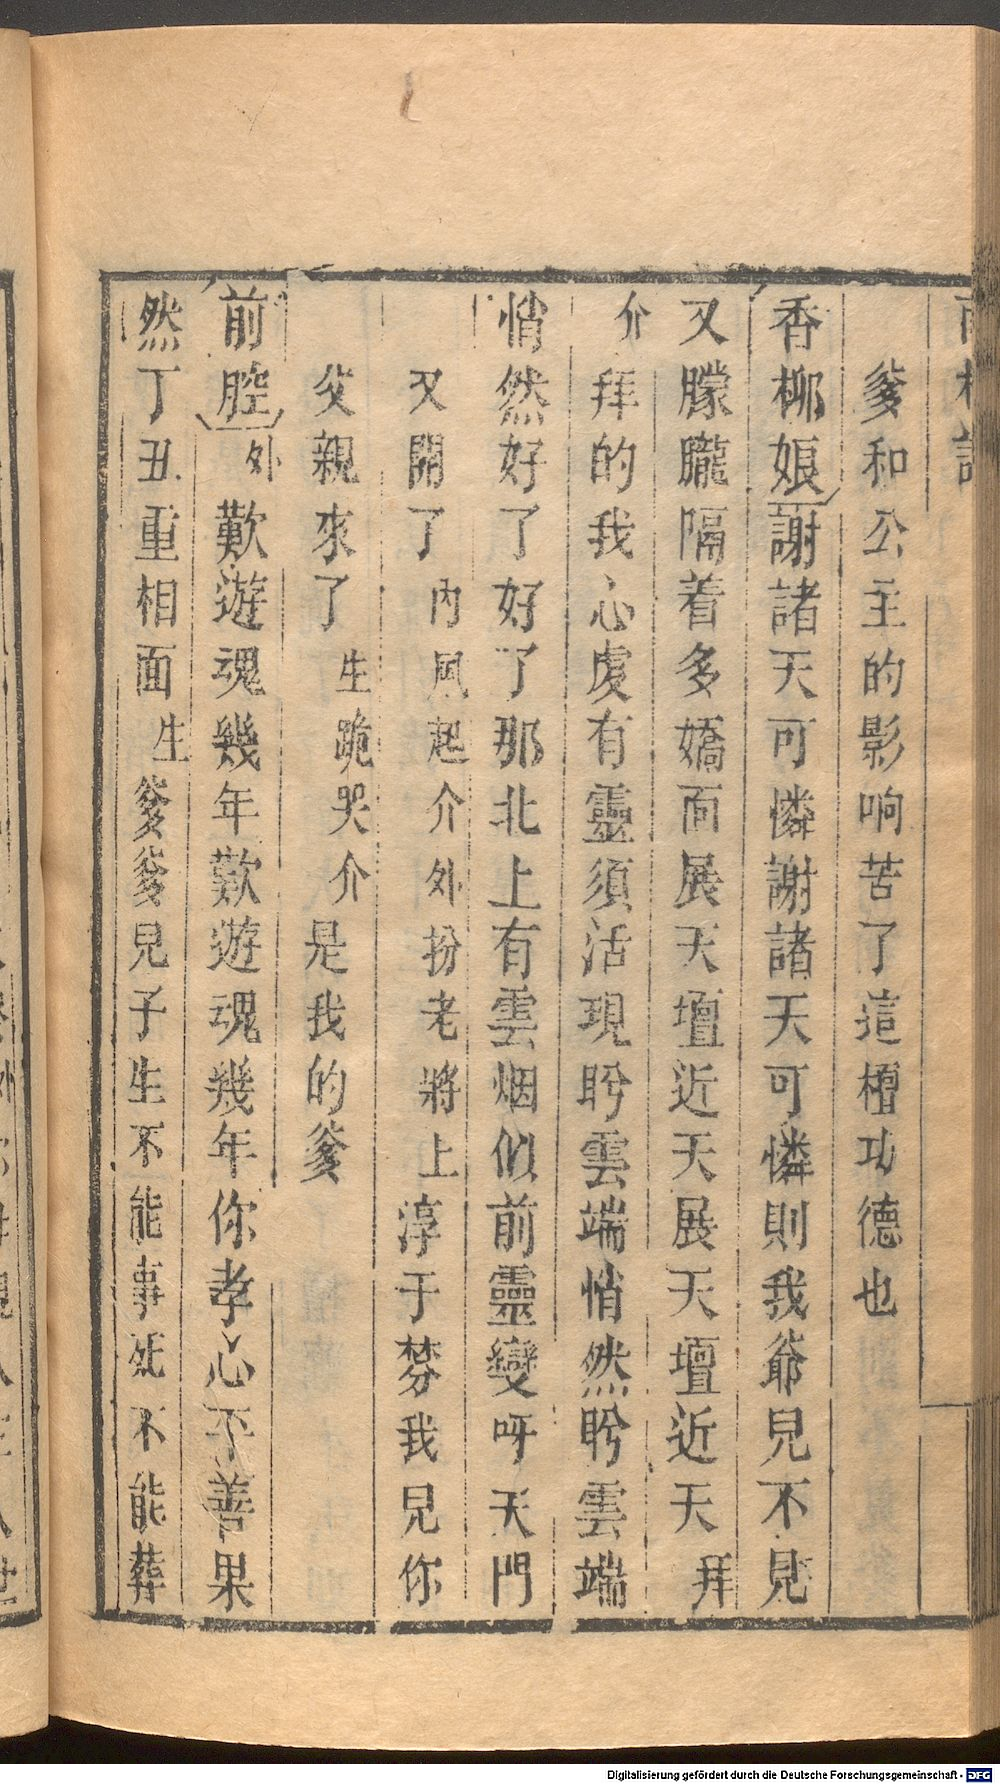 南柯記
爹和公主的影响苦了這櫃功德也
香柳娘謝諸天可憐謝諸天可憐則我爺見不見
又朦朧隔着多嬌面展天壇近天展天壇近天拜
介拜的我心虔有靈須活現盻雲端悄然盻雲端
悄然好了好了那北上有雲烟似前靈變呀天門
又開了內風起介外扮老將上淳于棼我兒你
父親來了生跪哭介是我的爹
前腔外歎遊魂幾年歎遊魂幾年你孝心不善果
然丁丑重相面生爹爹兒子生不能事死不能葬
Digitalisierung gefördert durch die Deutsche Forschungsgemeinschaft - DFG